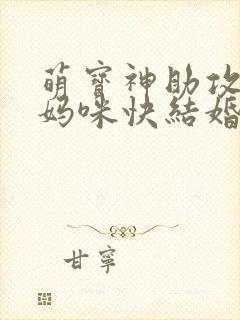 萌寶神助攻
媽咪快結婚
甘寧